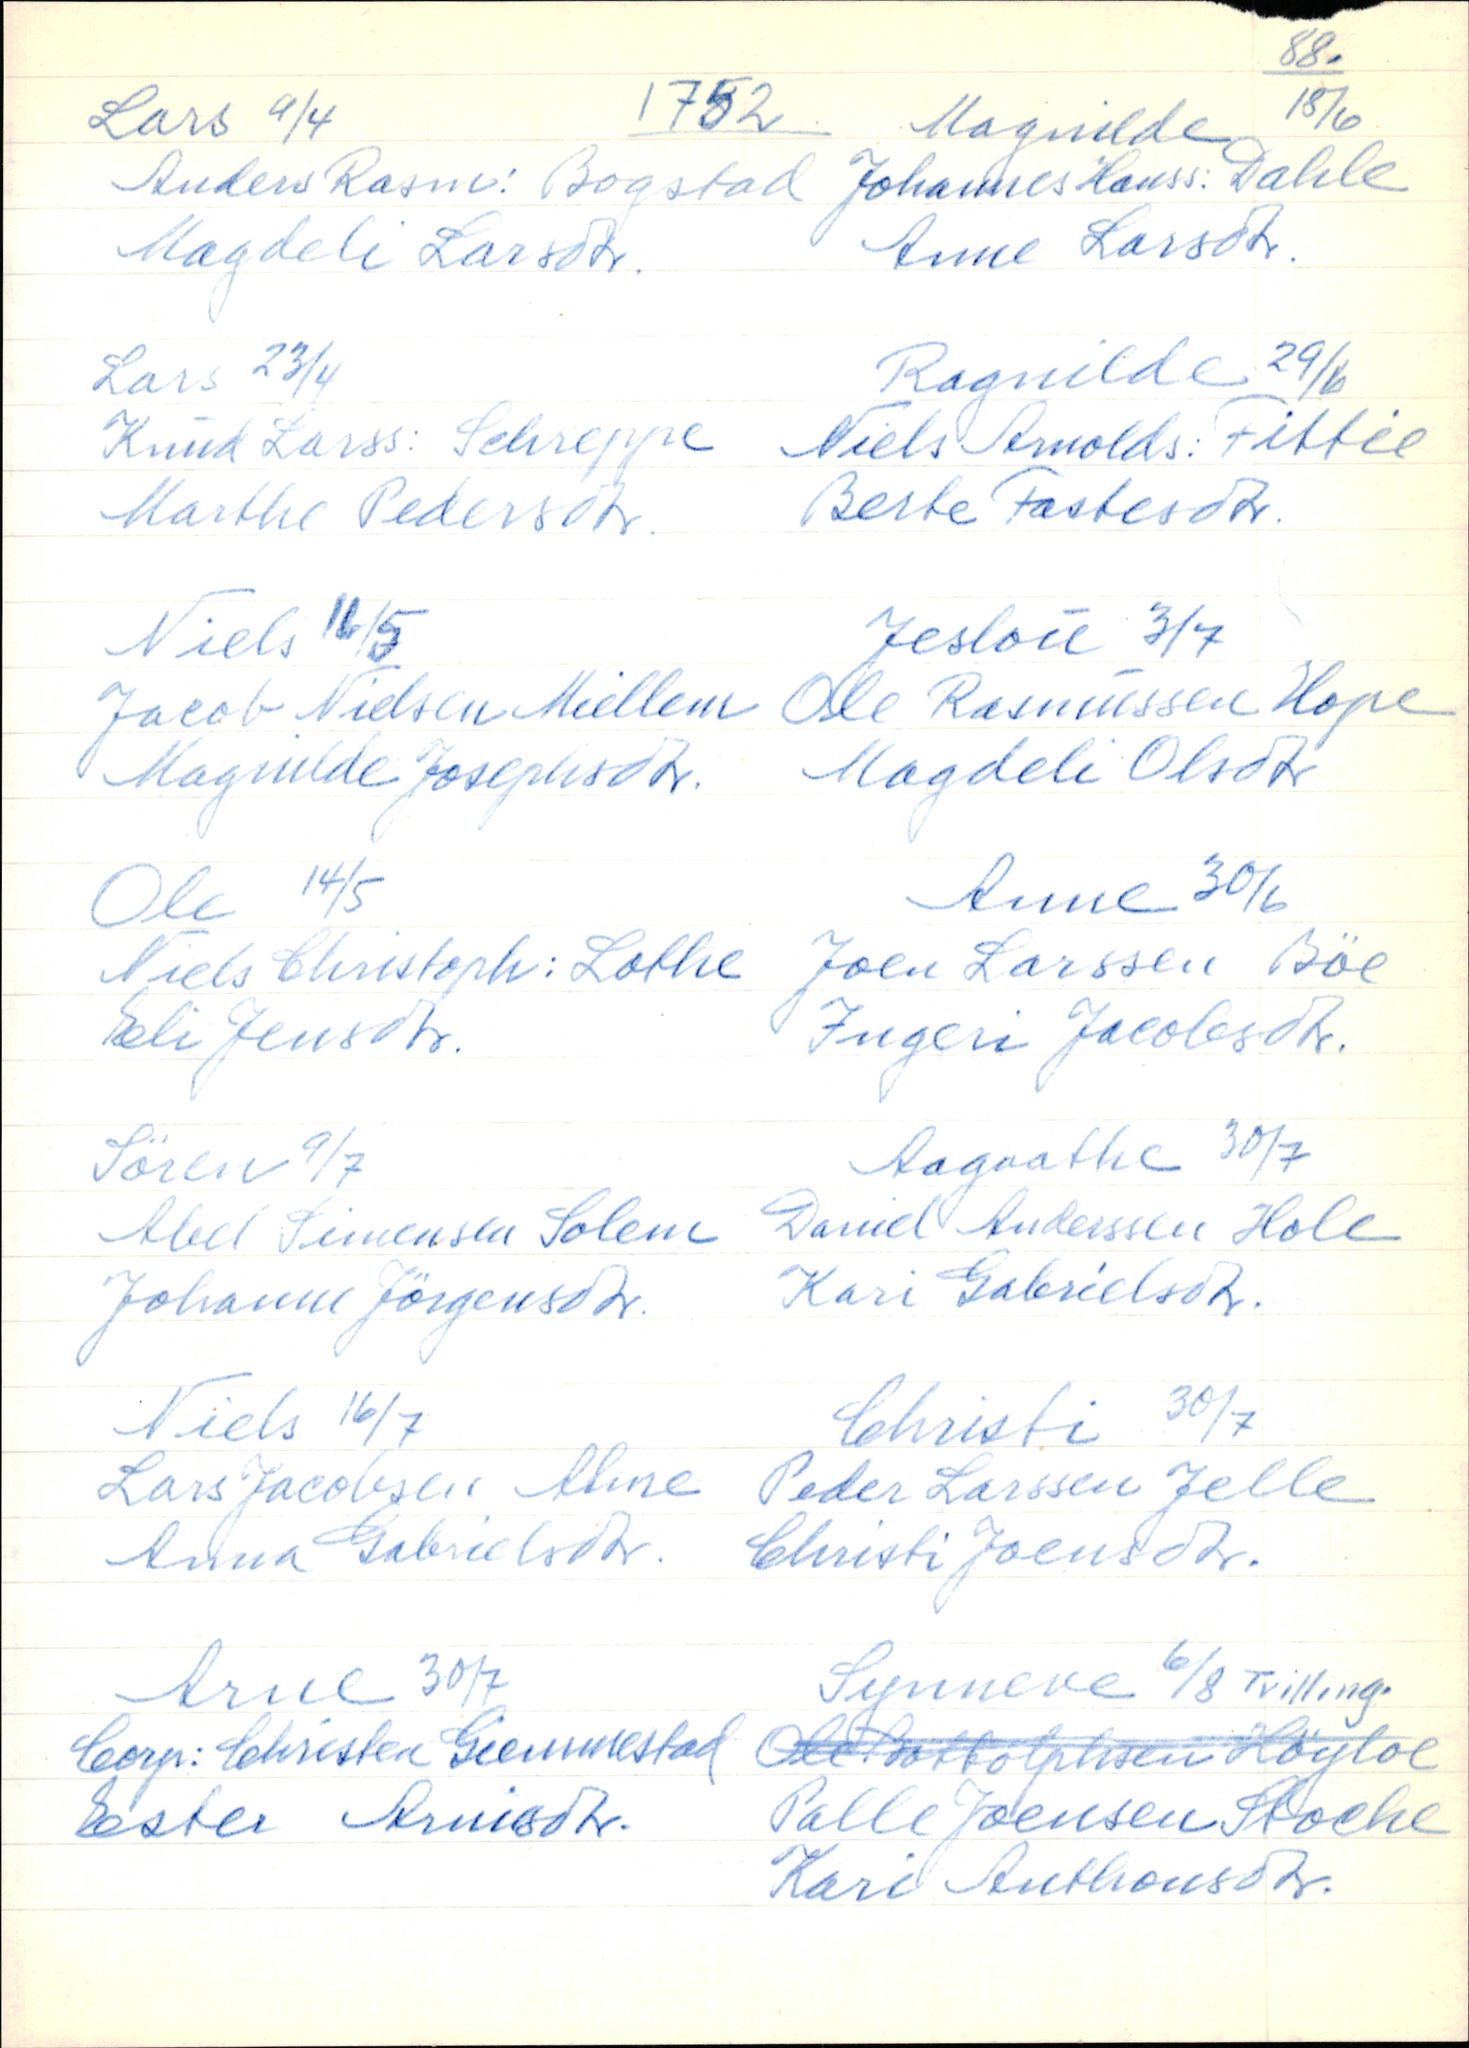 88.
1752
Lars 9/4
Anders Rasm: Bogstad
Magdeli Larsdtr.
Lars 23/4
Knud Larss: Schreppe
Marthe Pedersdtr.
Niels 16/5
Jacob Nielsen Miellem
Magnilde Josephsdtr.
Ole 14/5
Niels Christoph: Lothe
Eli Jensdtr.
Sören 9/7
Abel Simensen Solem
Johanne Jörgensdtr.
Niels 16/7
Lars Jacobsen Ahne
Anna Gabrielsdtr.
Arne 30/7
Corp: Christen Giemmestad
Ester Arnisdtr.
Magnilde 18/6
Johannes Hanss: Dahle
Anne Larsdtr.
Ragnilde 29/6
Niels Arnolds: Fittie
Berte Fastesdtr.
Jesloü 3/7
Ole Rasmüssen Hope
Magdeli Olsdtr
Anne 30/6
Joen Larssen Böe
Ingeri Jacobsdtr.
Aagaathe 30/7
Daniel Anderssen Hole
Kari Gabrielsdtr.
Christi 30/7
Peder Larssen Jelle
Christi Joensdtr.
Synneve 6/8 Tvilling.
Ole Bottolphsen Höyloe
Palle Joensen Stoche
Kari Anthonsdtr.